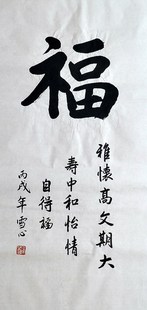 福
雅懷高文期大
壽中和怡情
自得福
丙戌年雪心